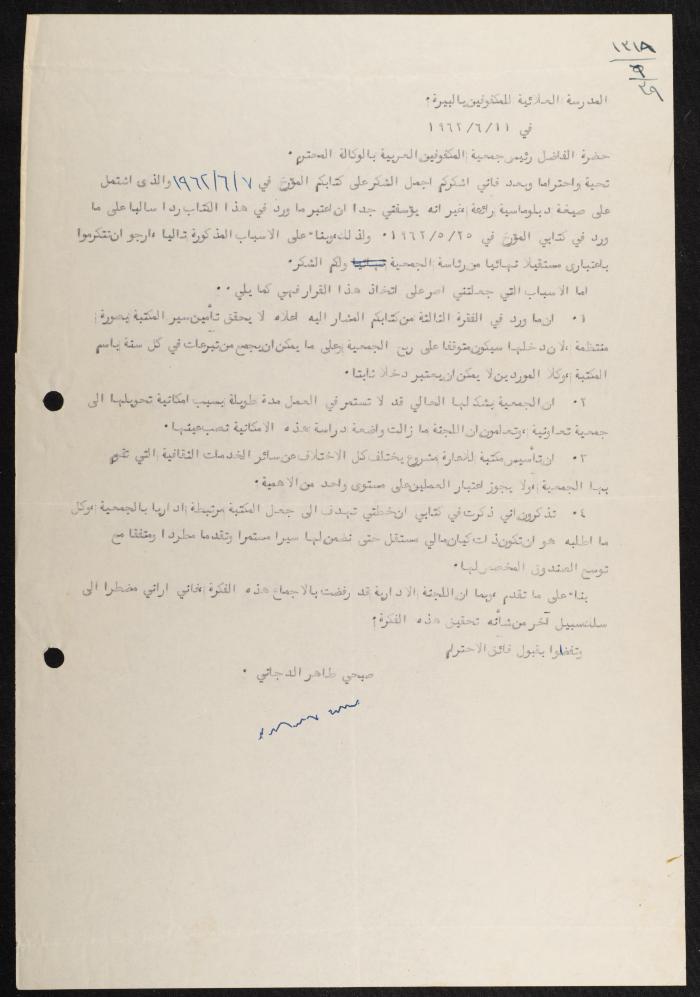 ١٣١٨
٣٩
المدرسة العلائية للمكفوفين بالبيرة.
في ١٩٦٢/٦/١١
حضرة الفاضل رئيس جمعية المكفوفين العربية بالوكالة المحترم.
تحية واحتراما وبعد فاني اشكركم اجمل الشكر على كتابكم المؤرخ في ١٩٦٢/٦/٧ والذى اشتمل
على صيغة دبلوماسية رائعة، غير انه يؤسفني جدا ان اعتبر ما ورد في هذا الكتاب ردا سالبا على ما
ورد في كتابي المؤرخ في ١٩٦٢/٥/٢٥. ولذلك، وبناء على الاسباب المذكورة تاليا، ارجو ان تتكرموا
باعتبارى مستقيلا نهائيا من رئاسة الجمعية نهائيا ولكم الشكر.
اما الاسباب التي جعلتني اصر على اتخاذ هذا القرار فهي كما يلي..
١. ان ما ورد في الفقرة الثالثة من كتابكم المشار اليه اعلاه لا يحقق تأمين سير المكتبة بصورة
منتظمة، لان دخلها سيكون متوقفا على ريع الجمعية وعلى ما يمكن ان يجمع من تبرعات في كل سنة باسم
المكتبة، وكلا الموردين لا يمكن ان يعتبر دخلا ثابتا.
٢. ان الجمعية بشكلها الحالي قد لا تستمر في العمل مدة طويلة بسبب امكانية تحويلها الى
جمعية تعاونية، وتعلمون ان اللجنة ما زالت واضعة دراسة هذه الامكانية نصب عينها.
٣. ان تأسيس مكتبة للاعارة مشروع يختلف كل الاختلاف عن سائر الخدمات الثقافية التي تقوم
بها الجمعية، ولا يجوز اعتبار العملين على مستوى واحد من الاهمية.
٤. تذكرون اني ذكرت في كتابي ان خطتي تهدف الى جعل المكتبة مرتبطة اداريا بالجمعية، وكل
ما اطلبه هو ان تكون ذات كيان مالي مستقل حتى نضمن لها سيرا مستمرا وتقدما مطردا ومتفقا مع
توسع الصندوق المخصص لها.
بناء على ما تقدم، وبما ان اللجنة الادارية قد رفضت بالاجماع هذه الفكرة، فاني اراني مضطرا الى
سلك سبيل آخر من شأنه تحقيق هذه الفكرة.
وتفضلوا بقبول فائق الاحترام
صبحي طاهر الدجاني.